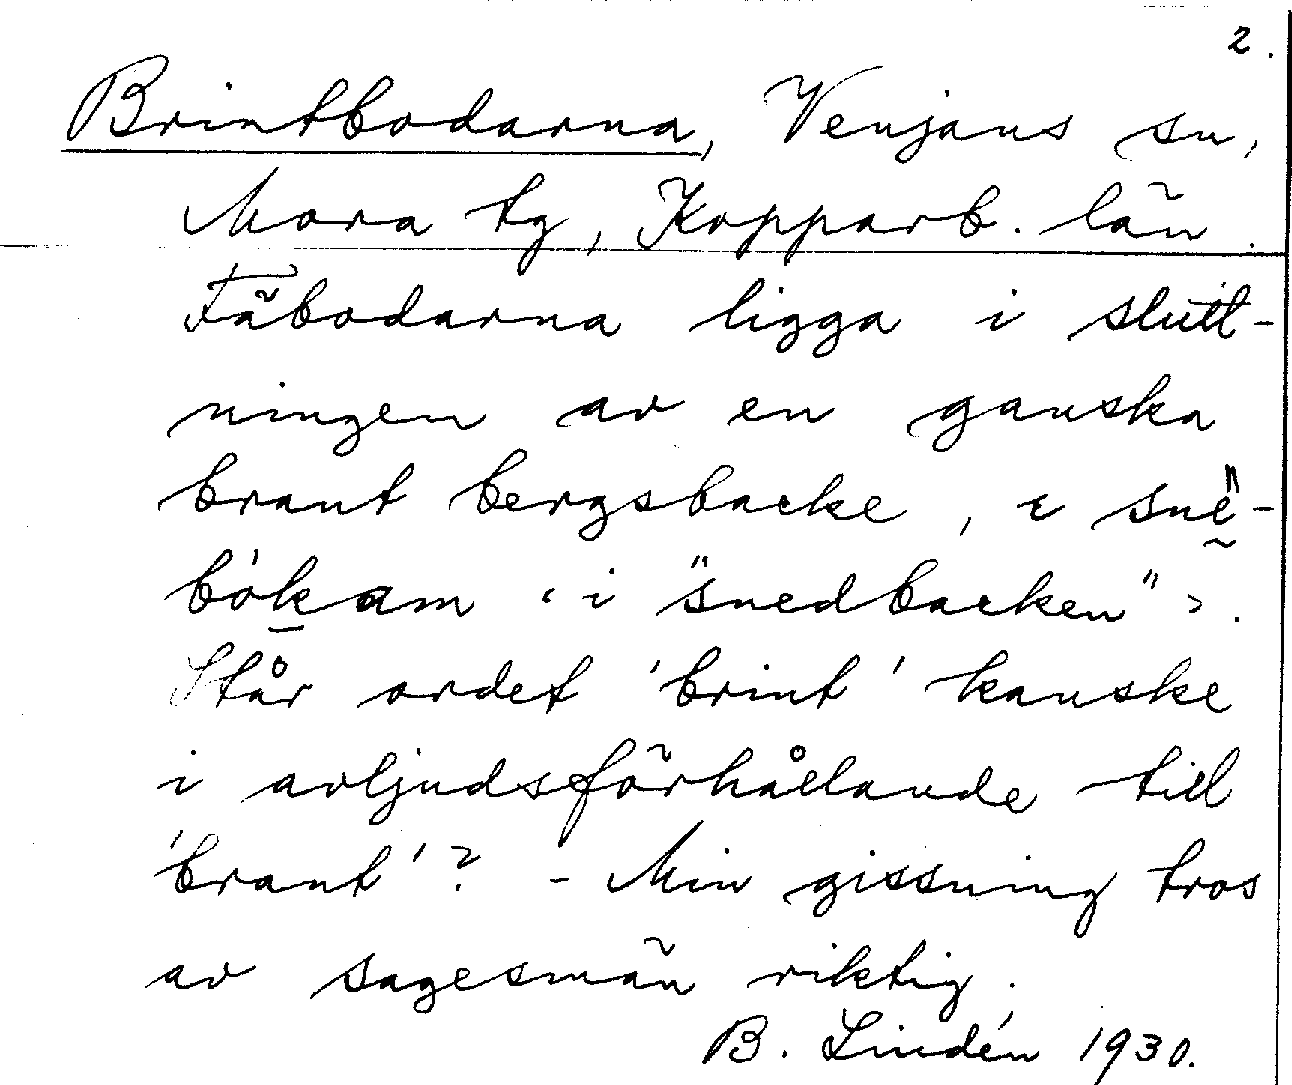 2.
Brintbodarna, Venjans sn,
Mora tg, Kopparb. län.
Fäbodarna ligga i slutt-
ningen av en ganska
brant bergsbacke, i snḛ̈-
bók̲am ‹ i "snedbacken" ›.
Står ordet 'brint' kanske
i avljudsförhållande till
'brant'? - Min gissning tros
av sagesmän riktig.
B. Lindén 1930.